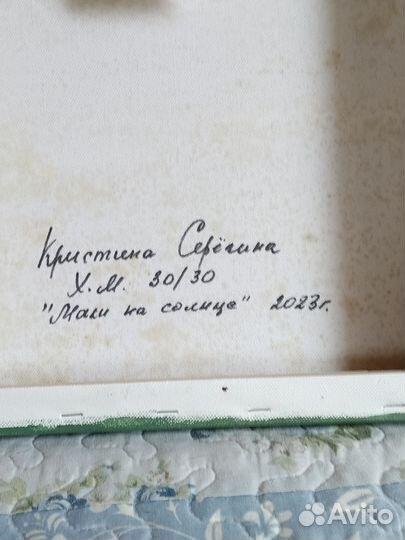 Кристина Серёгина
Х.М. 30/30
"Маки на солнце" 2023г.
Avito